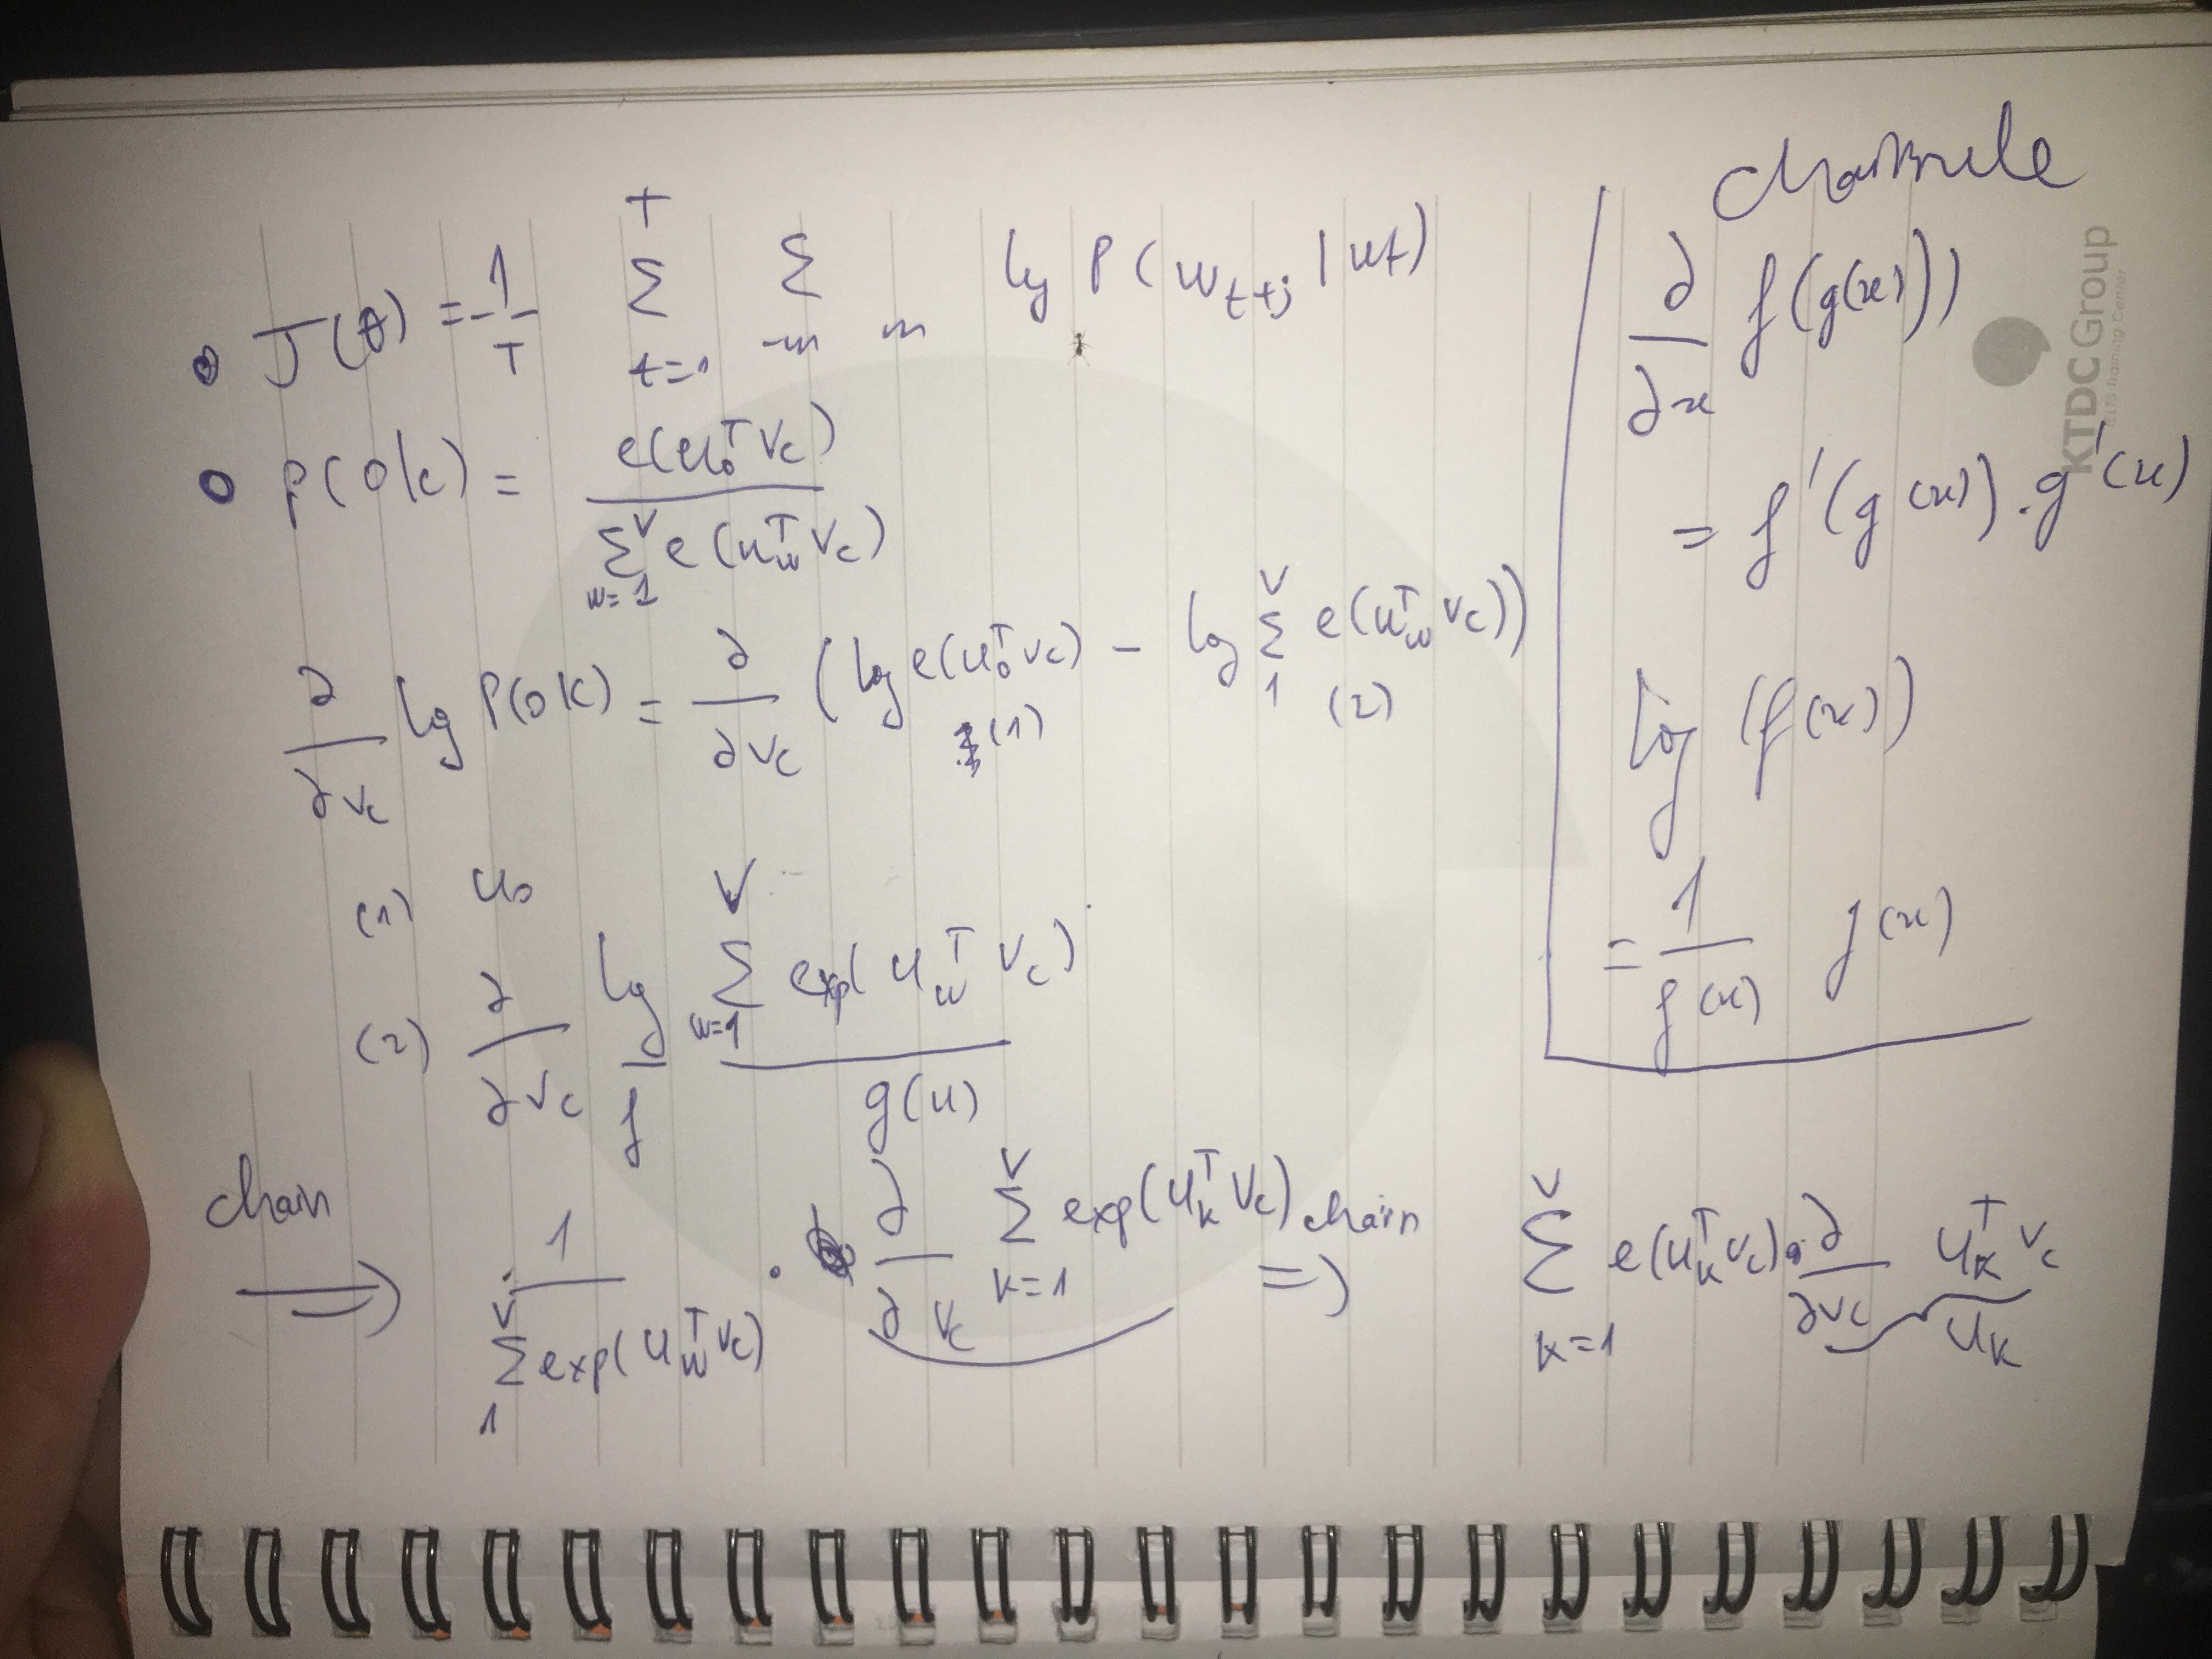 • J(θ) = -1/T T Σ t=1 Σ -m m log P(w_{t+j} | wt)
o P(o|c) = e(u_o^T v_c) / Σ_{w=1}^V e(u_w^T v_c)
∂/∂v_c log P(o|c) = ∂/∂v_c (log e(u_o^T v_c) - log Σ_1^V e(u_w^T v_c))
(1) (2)
(1) u_o
(2) ∂/∂v_c log Σ_{w=1}^V exp(u_w^T v_c)
f g(u)
chain ⇒ 1 / Σ_1^V exp(u_w^T v_c) · ∂/∂v_c Σ_{k=1}^V exp(u_k^T v_c) chain => Σ_{k=1}^V e(u_k^T v_c) · ∂/∂v_c u_k^T v_c
u_k
chainrule
∂/∂x f(g(x))
= f'(g(x)) . g'(x)
log (f(x))
= 1/f(x) f(x)
KTDC Group
IELTS Training Center